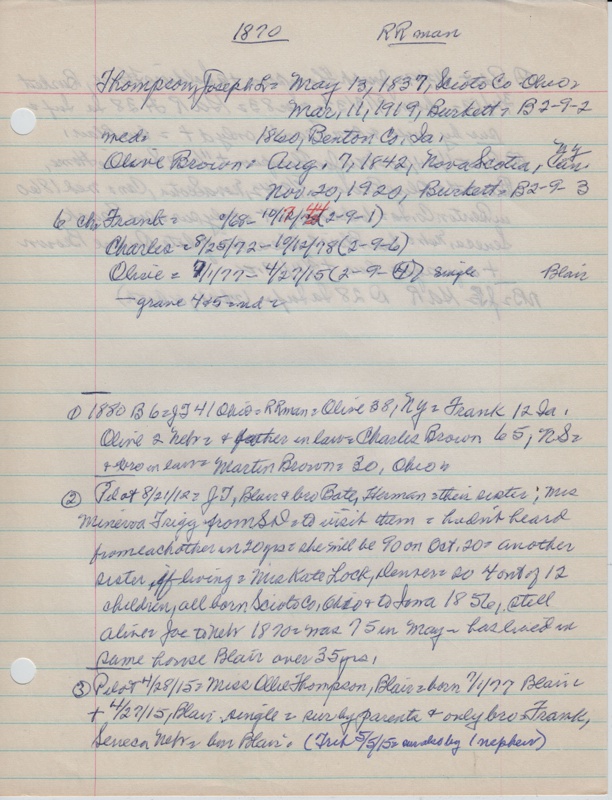 1870 RR man
Thompson, Joseph L = May 13, 1837, Scioto Co Ohio =
Mar, 11, 1919, Burkett = B2-9-2
md = 1860, Benton Co, Ia.
Olive Brown = Aug. 7, 1842, Nova Scotia, Can. NY
Nov. 20, 1920, Burkett = B2-9-3
6 ch. Frank = /68- (2-9-1)
Charles = 8/25/72 - 10/12/78 (2-9-6)
Olive = 7/1/77 - 4/27/15 (2-9-4) single Blair
- grave 4 & 5 = nd =
① 1880 B6 = JT 41 Ohio = RR man = Olive 38, NY = Frank 12 Ia.
Olive 2 Nebr = & father in law = Charles Brown 65, NS =
& bro in law = Martin Brown = 30, Ohio =
② Pilot 8/21/12 = J.T, Blair & bro Bate, Herman = their sister; Mrs
Minerva Trigg from SD = to visit them = hadn't heard
from each other in 20 yrs = she will be 90 on Oct. 20 = another
sister, if living = Mrs Kate Lock, Denver = so 4 out of 12
children, all born Scioto Co, Ohio & to Iowa 1856, still
alive = Joe to Nebr 1870 = was 75 in May - has lived in
same house Blair over 35 yrs.
③ Pilot 4/28/15 = Miss Ollie Thompson, Blair = born 7/1/77 Blair =
+ 4/27/15, Blair single = sur by parents & only bro = Frank,
Seneca Nebr = bur Blair = (Trib 5/5/15 = survived by 1 nephew)